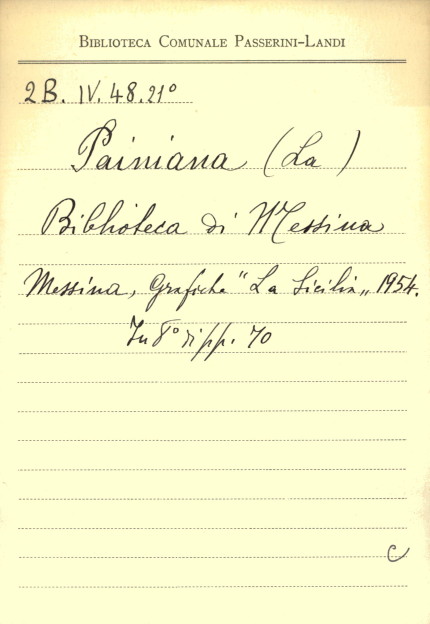 BIBLIOTECA COMUNALE PASSERINI-LANDI
2B. IV. 48. 21°
Painiana (La)
Biblioteca di Messina
Messina, Grafiche "La Sicilia„ 1954.
In 8° di pp. 70
C